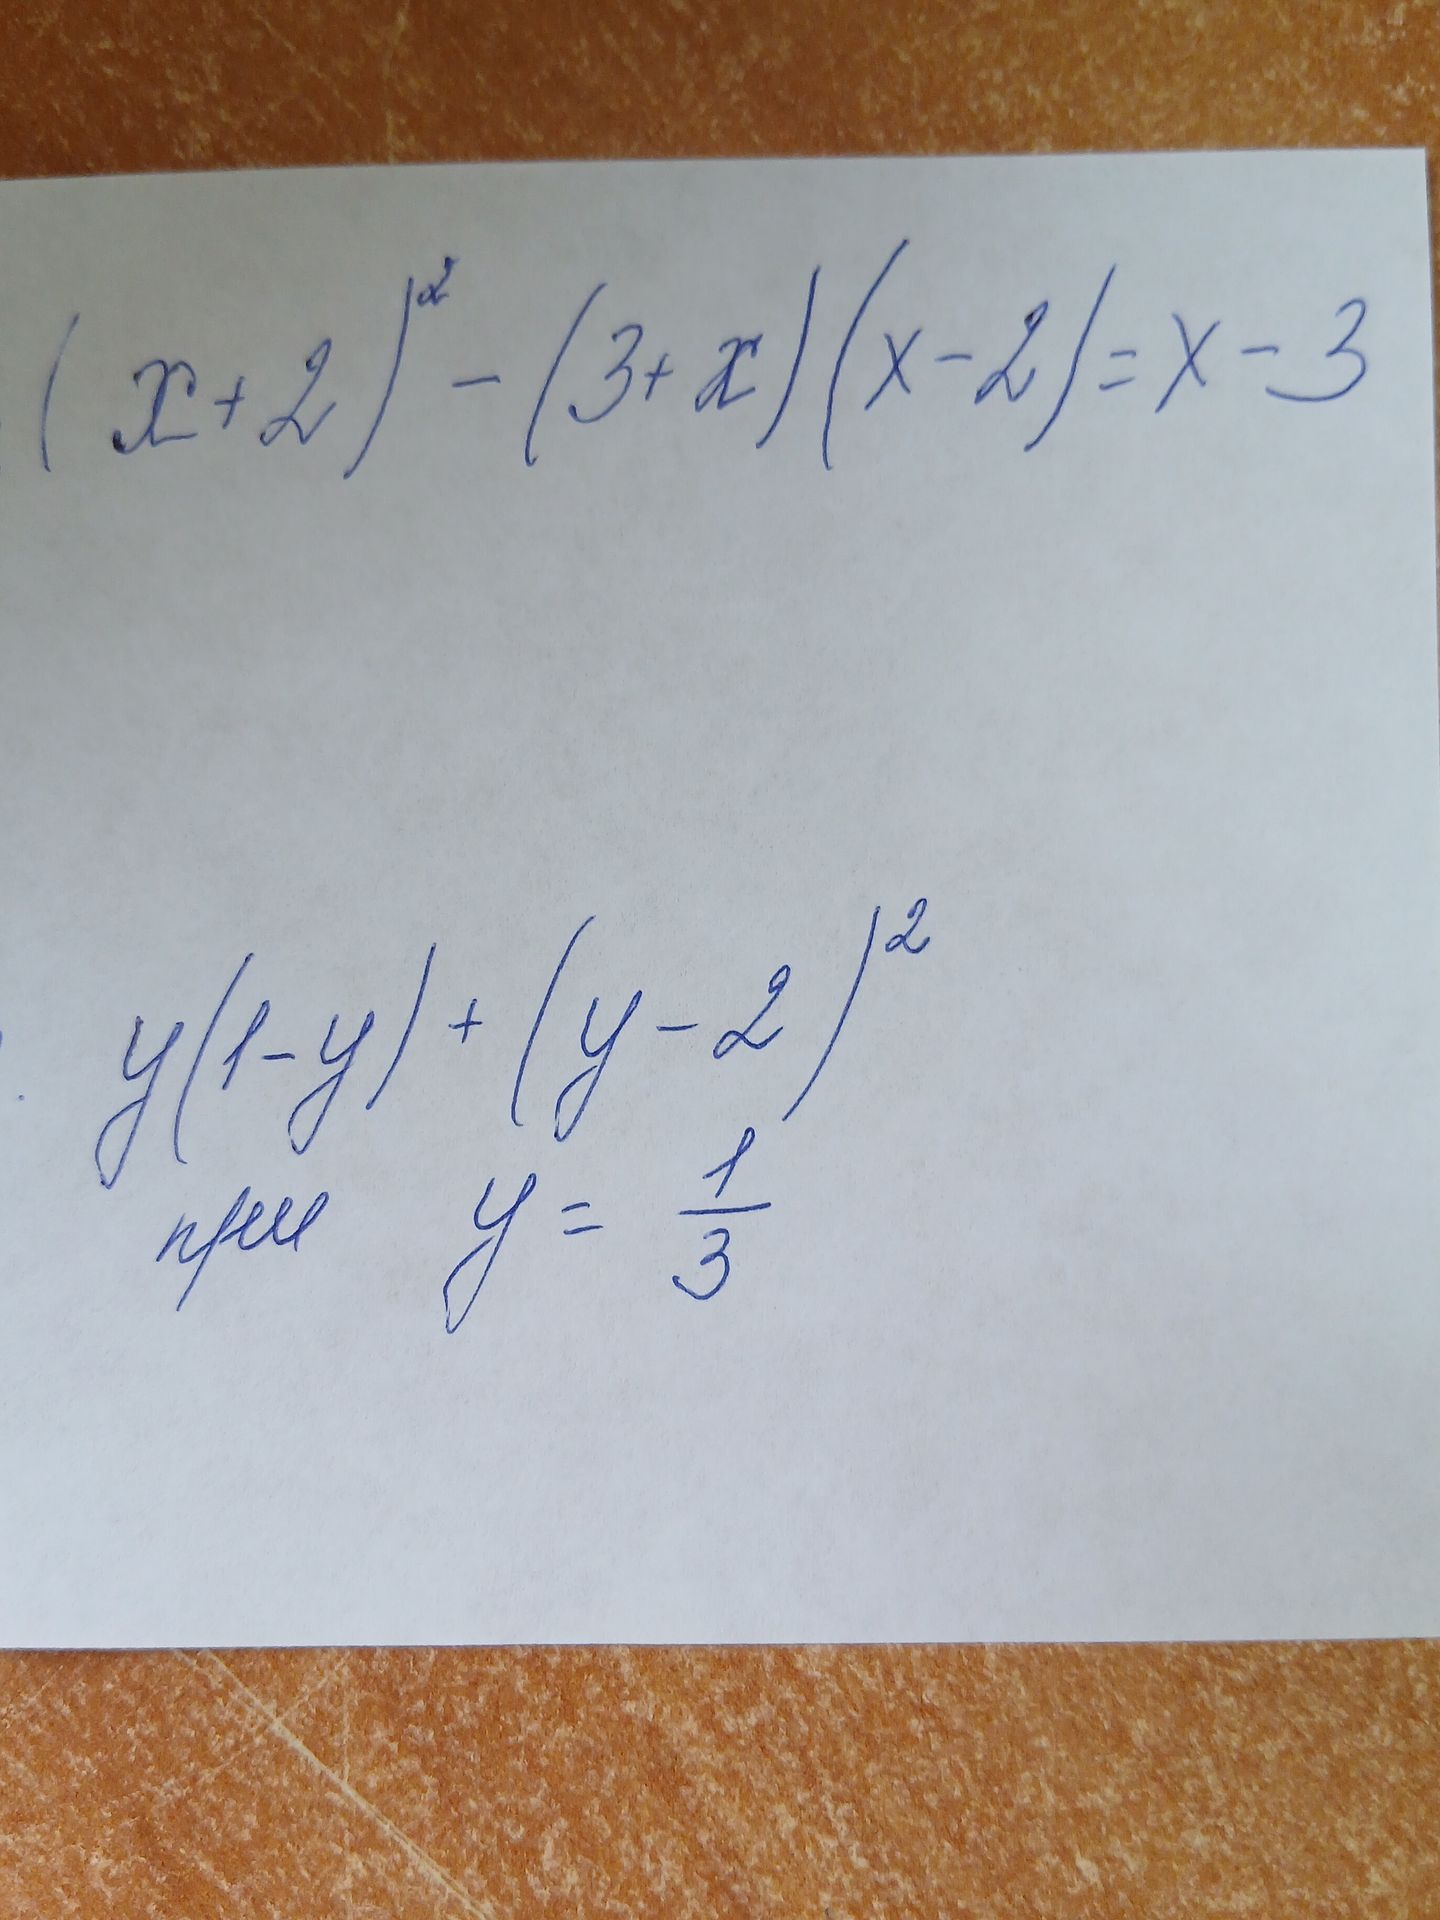 (x+2)² - (3+x)(x-2) = x - 3
y(1-y) + (y-2)²
при y = 1/3